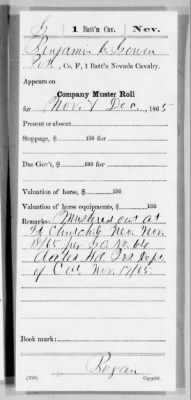 G | 1 Batt'n Cav. | Nev.
Benjamin C. Gowen
Pvt., Co. F, 1 Batt'n Nevada Cavalry.
Appears on
Company Muster Roll
for Nov. & Dec., 1865
Present or absent
Stoppage, $ 100 for
Due Gov't, $ 100 for
Valuation of horse, $ 100
Valuation of horse equipments, $ 100
Remarks: Mustered out at
Ft. Churchill Nev. Nov.
18/65 per G.O. No. 64
Hd. Qrs. Dept.
of Cal. Nov.
Book mark:
Copyist.